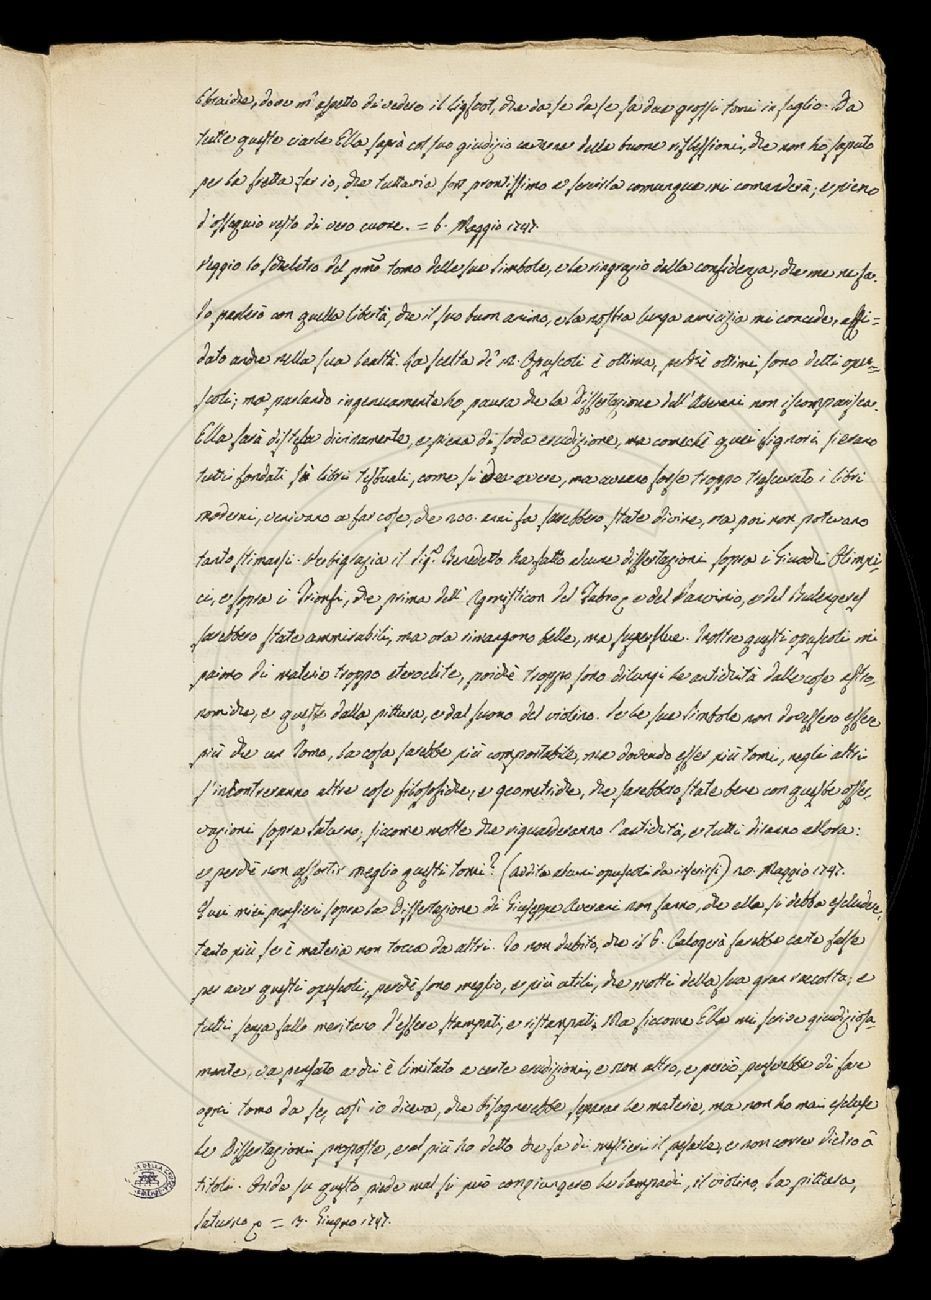 Ebraiche, dove m'aspetto di vedere il Ligfoot, che da se da se fa due grossi tomi in foglio. Da
tutte queste ciarle Ella saprà col suo giudizio cavarne delle buone riflessioni, che non ho saputo
per la fretta far io, che tuttavia son prontissimo a servirla comunque mi comanderà; e pieno
d'ossequio resto di vero cuore. = 6. Maggio 1747.
Veggio lo scheletro del pmo tomo delle sue Simbole, e la ringrazio della confidenza, che me ne fa.
Io parlerò con quella libertà, che il suo buon animo, e la nostra lunga amicizia mi concede, affi=
dato anche nella sua lealtà. La scelta de' 12 Opuscoli è ottima, perchè ottimi sono detti opu=
scoli; ma parlando ingenuamente ho paura che la Dissertazione dell'Averani non iscomparisca.
Ella sarà distesa divinamente, e piena di soda erudizione, ma comechè quei Signori s'erano
tutti fondati su libri testuali, come si dee avere, ma aveano forse troppo trascurato i libri
moderni, venivano a far cose, che 200. anni fa sarebbero state divine, ma poi non potevano
tanto stimarsi. Verbigrazia il Sigr. Benedetto ha fatto alcune dissertazioni sopra i Giuochi Olimpi-
ci, e sopra i Trionfi, che prima dell'Agonisticon del Fabro, e del Panvinio, e del Bulengero
sarebbero state ammirabili, ma ora rimangono belle, ma superflue. Inoltre questi opuscoli mi
paiono di materie troppo eteroclite, poichè troppo sono dilungi le antichità dalle cose astro-
nomiche, e queste dalla pittura, e dal suono del violino. Se le sue Simbole non dovessero essere
più che un Tomo, la cosa sarebbe più comportabile, ma dovendo esser più tomi, negli altri
s'incontreranno altre cose filosofiche, e geometriche, che sarebbero state bene con queste osser-
vazioni sopra Saturno, siccome molte che riguarderanno l'antichità, e tutti diranno allora:
e perchè non assortir meglio questi tomi? (addita alcuni opuscoli da inserirsi) 20. Maggio 1747.
Quei miei pensieri sopra la Dissertazione di Giuseppe Averani non fanno, che ella si debba escludere,
tanto più se è materia non tocca da altri. Io non dubito, che il P. Calogerà farebbe carte false
per aver questi opuscoli, perchè sono meglio, e più utili, che molti della sua gran raccolta; e
tutti senza fallo meritano d'essere stampati, e ristampati. Ma siccome Ella mi scrive giudiziosa-
mente, va pensato a chi è limitato a certe erudizioni, e non altro, e perciò penserebbe di fare
ogni tomo da se, così io diceva, che bisognerebbe separar le materie, ma non ho mai escluse
le Dissertazioni proposte, e al più ho detto che fa di mestieri il pesarle, e non correr dietro a
titoli. Onde su questo piede mal si può congiungere le lampadi, il violino, la pittura,
Saturno = 3. Giugno 1747.